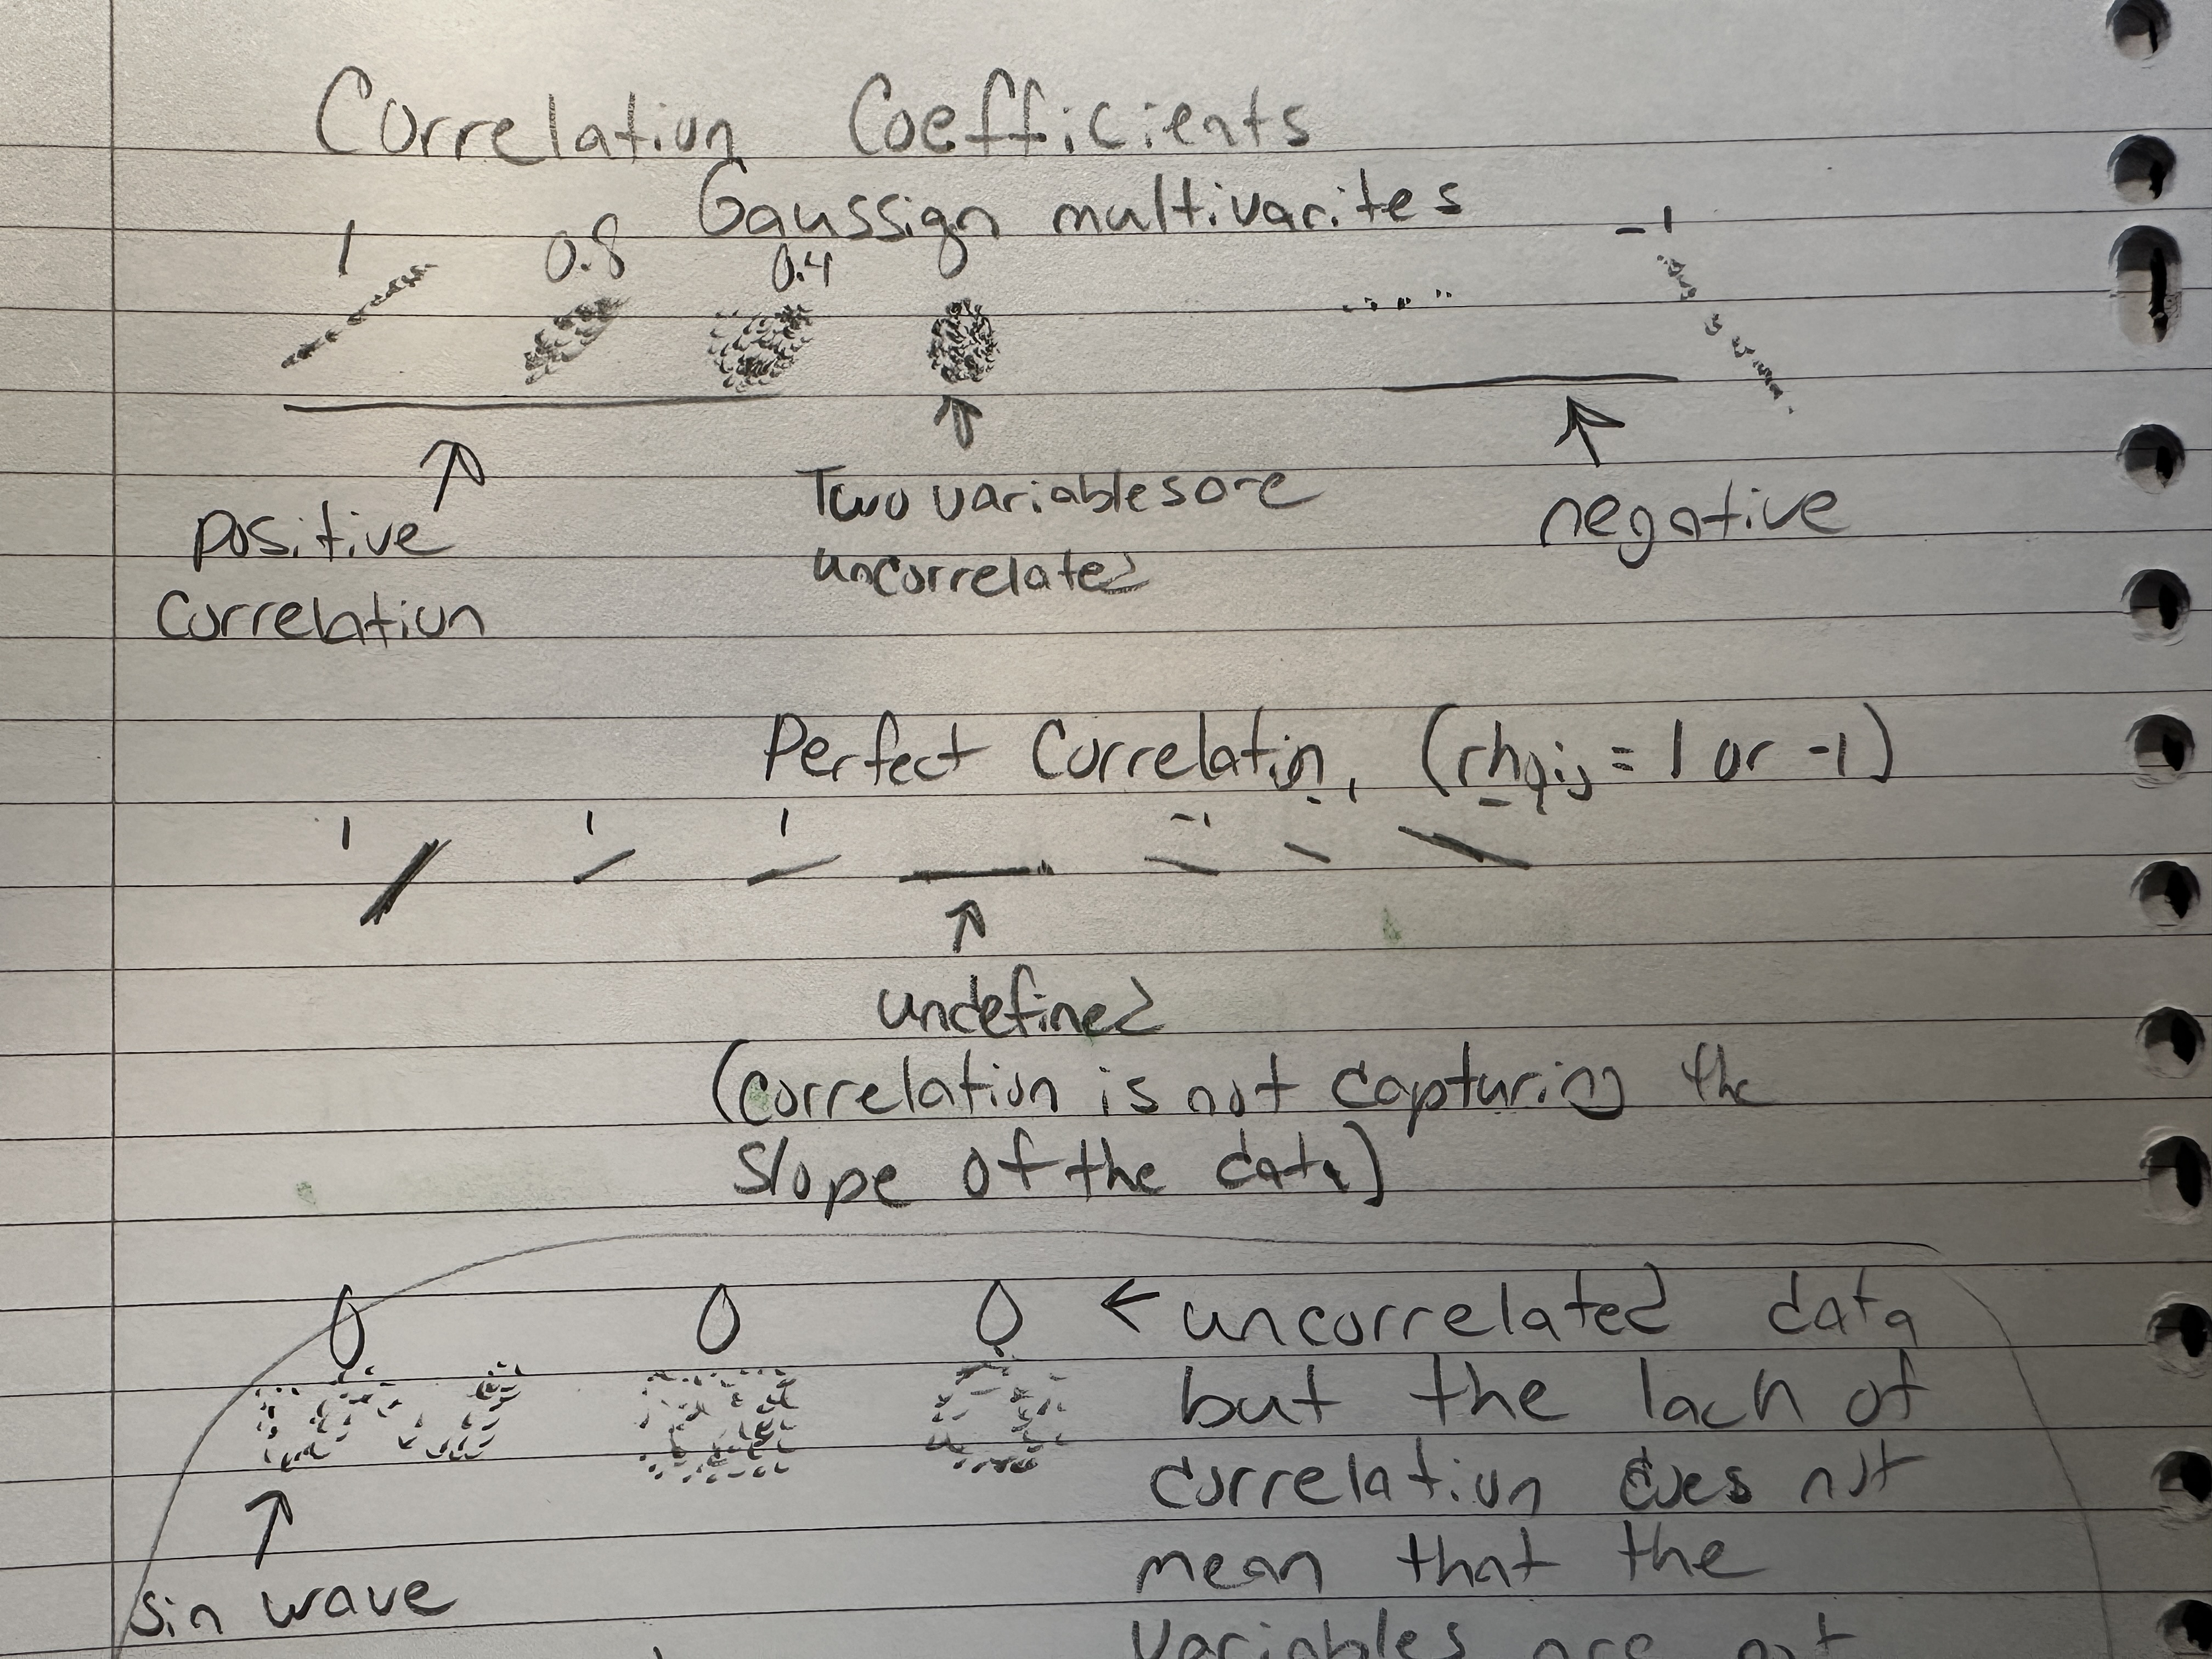 Correlation Coefficients
Gaussign multivarites
1 0.8 0.4 0 -1
positive
Correlation
Two variables are
uncorrelated
negative
Perfect Correlatin, (rhoij = 1 or -1)
1 1 1 -1 - -
undefined
(correlation is not capturing the
slope of the data)
0 0 0 ← uncorrelated data
but the lack of
correlation does not
mean that the
sin wave
variables are not